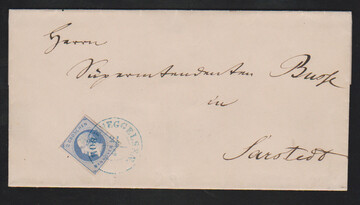 Herrn
Superintendenten Busse
in
Sarstedt